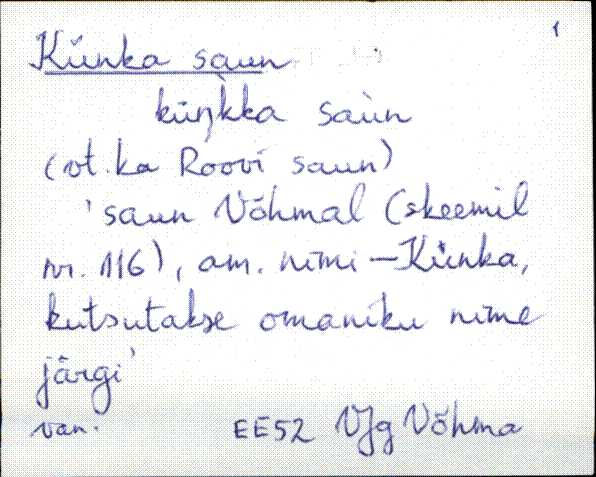 1
Künka saun
küŋ̀kka saùn
(vt. ka Roovi saun)
'saun Võhmal (skeemil
nr. 116), am. nimi – Künka,
kutsutakse omaniku nime
järgi'
van. EE52 VJg Võhma